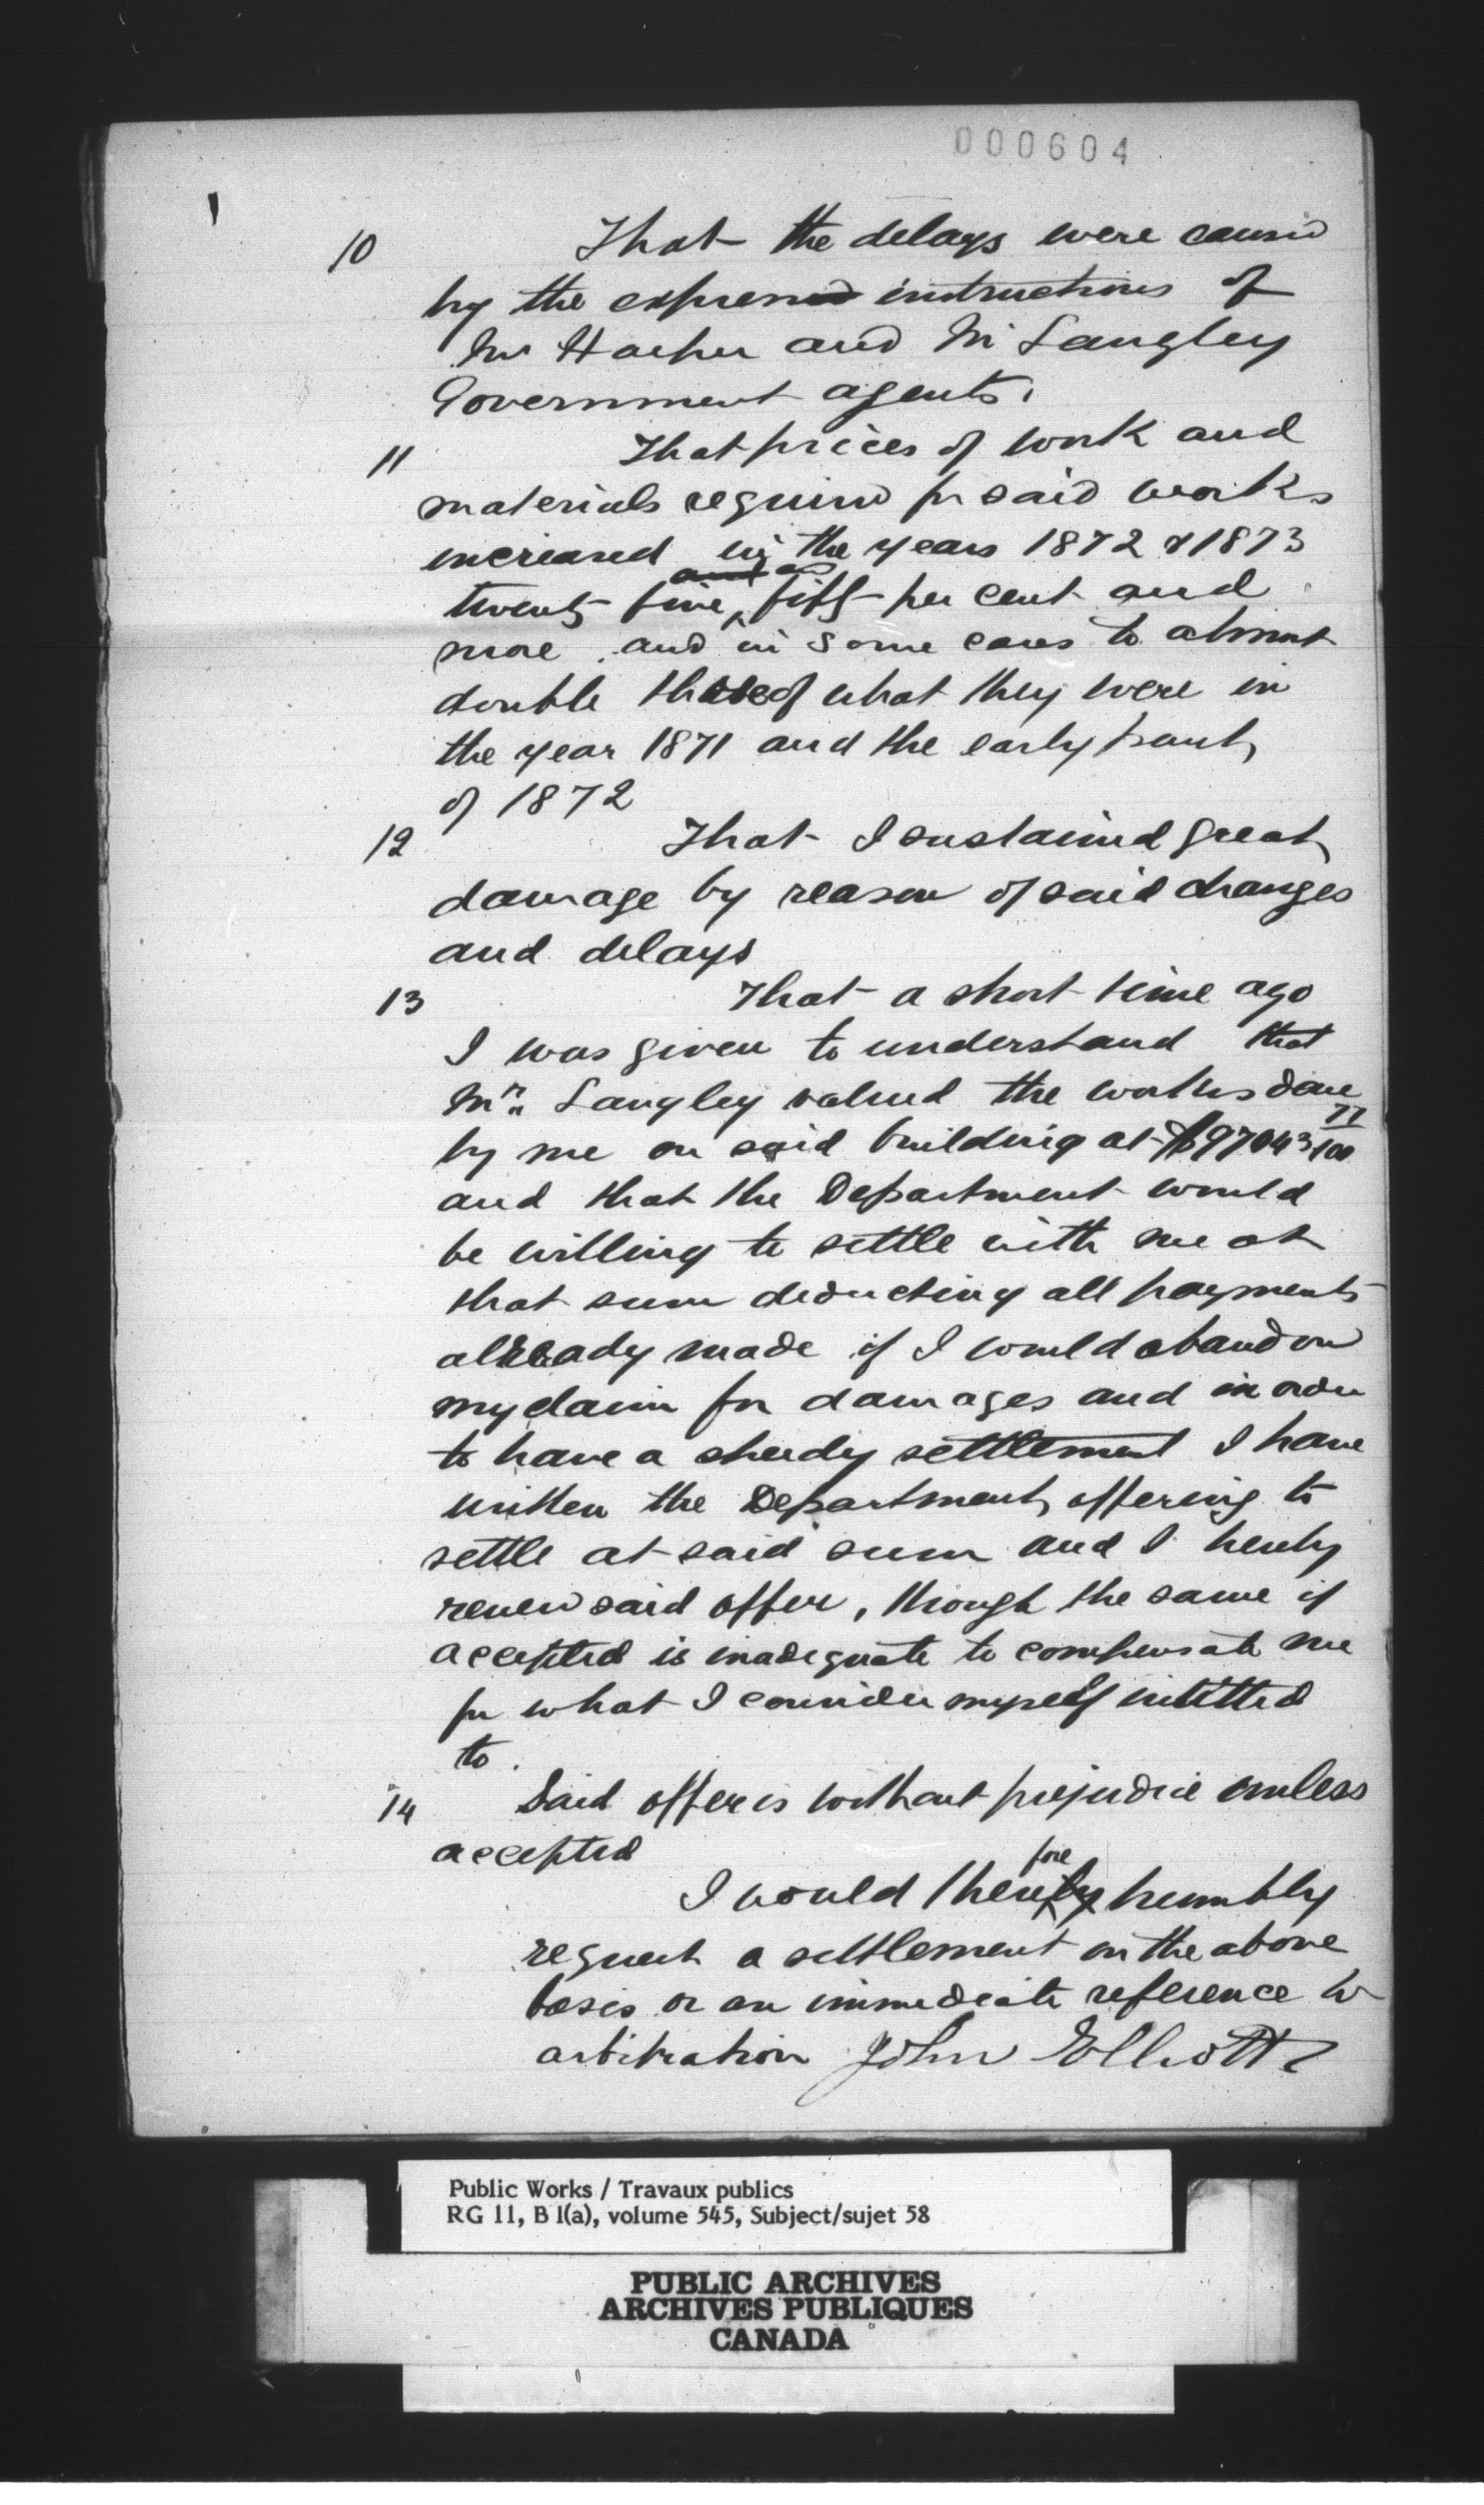 000604
10 That the delays were caused
by the expressed instructions of
Mr Harper and Mr Langley
Government agents.
11 That prices of work and
materials required for said works
increased in the years 1872 & 1873
twenty five, fifty per cent and
more and in some cases to almost
double those of what they were in
the year 1871 and the early part
of 1872
12 That I sustained great
damage by reason of said changes
and delays
13 That a short time ago
I was given to understand that
Mr. Langley valued the works done
by me on said building at $97043 77/100
and that the Department would
be willing to settle with me at
that sum deducting all payments
already made if I would abandon
my claim for damages and in order
to have a speedy settlement I have
written the Department offering to
settle at said sum and I hereby
renew said offer, though the same if
accepted is inadequate to compensate me
for what I consider myself intitled
to.
14 Said offer is without prejudice unless
accepted
fore
I would thereby humbly
request a settlement on the above
basis or an immediate reference to
arbitration John Elliott
Public Works / Travaux publics
RG 11, B 1(a), volume 545, Subject/sujet 58
PUBLIC ARCHIVES
ARCHIVES PUBLIQUES
CANADA